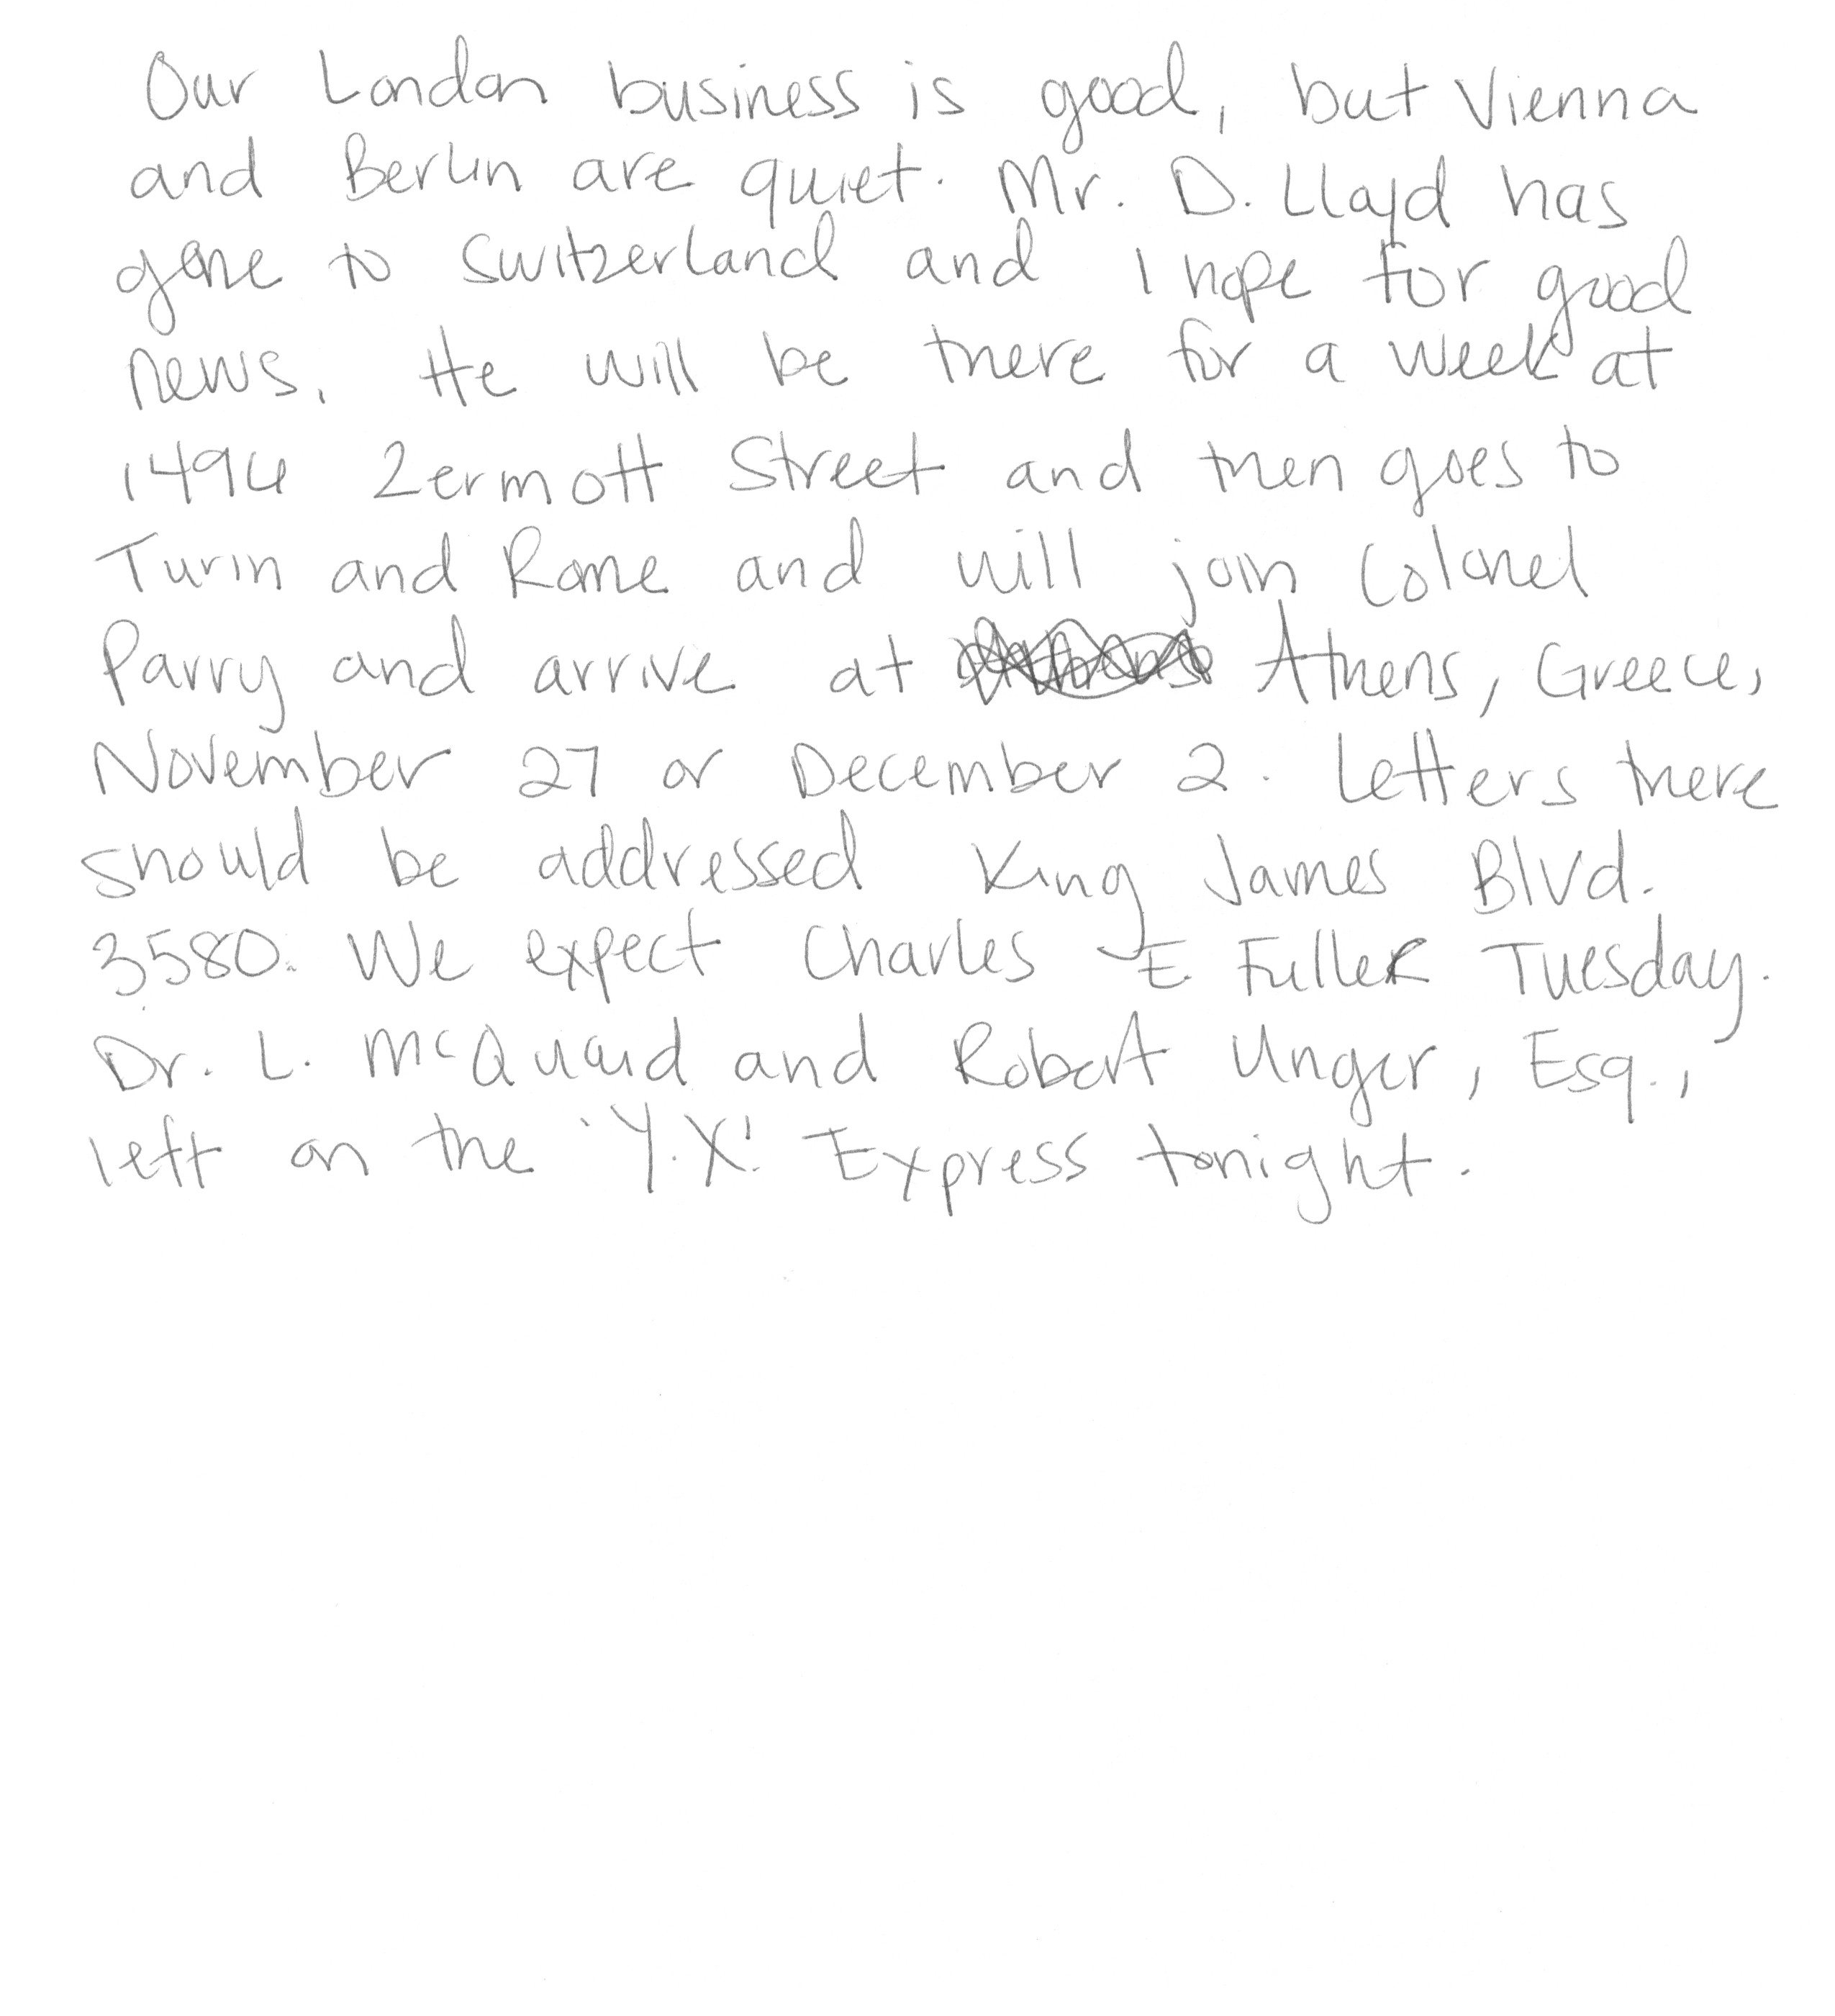 Our London business is good, but Vienna
and Berlin are quiet. Mr. D. Lloyd has
gone to Switzerland and I hope for good
news. He will be there for a week at
1494 Zermott Street and then goes to
Turin and Rome and will join Colonel
Parry and arrive at Athens, Greece,
November 27 or December 2. Letters there
should be addressed King James Blvd.
3580. We expect Charles E. Fuller Tuesday.
Dr. L. McQuaid and Robert Unger, Esq.,
left on the 'Y.X.' Express tonight.